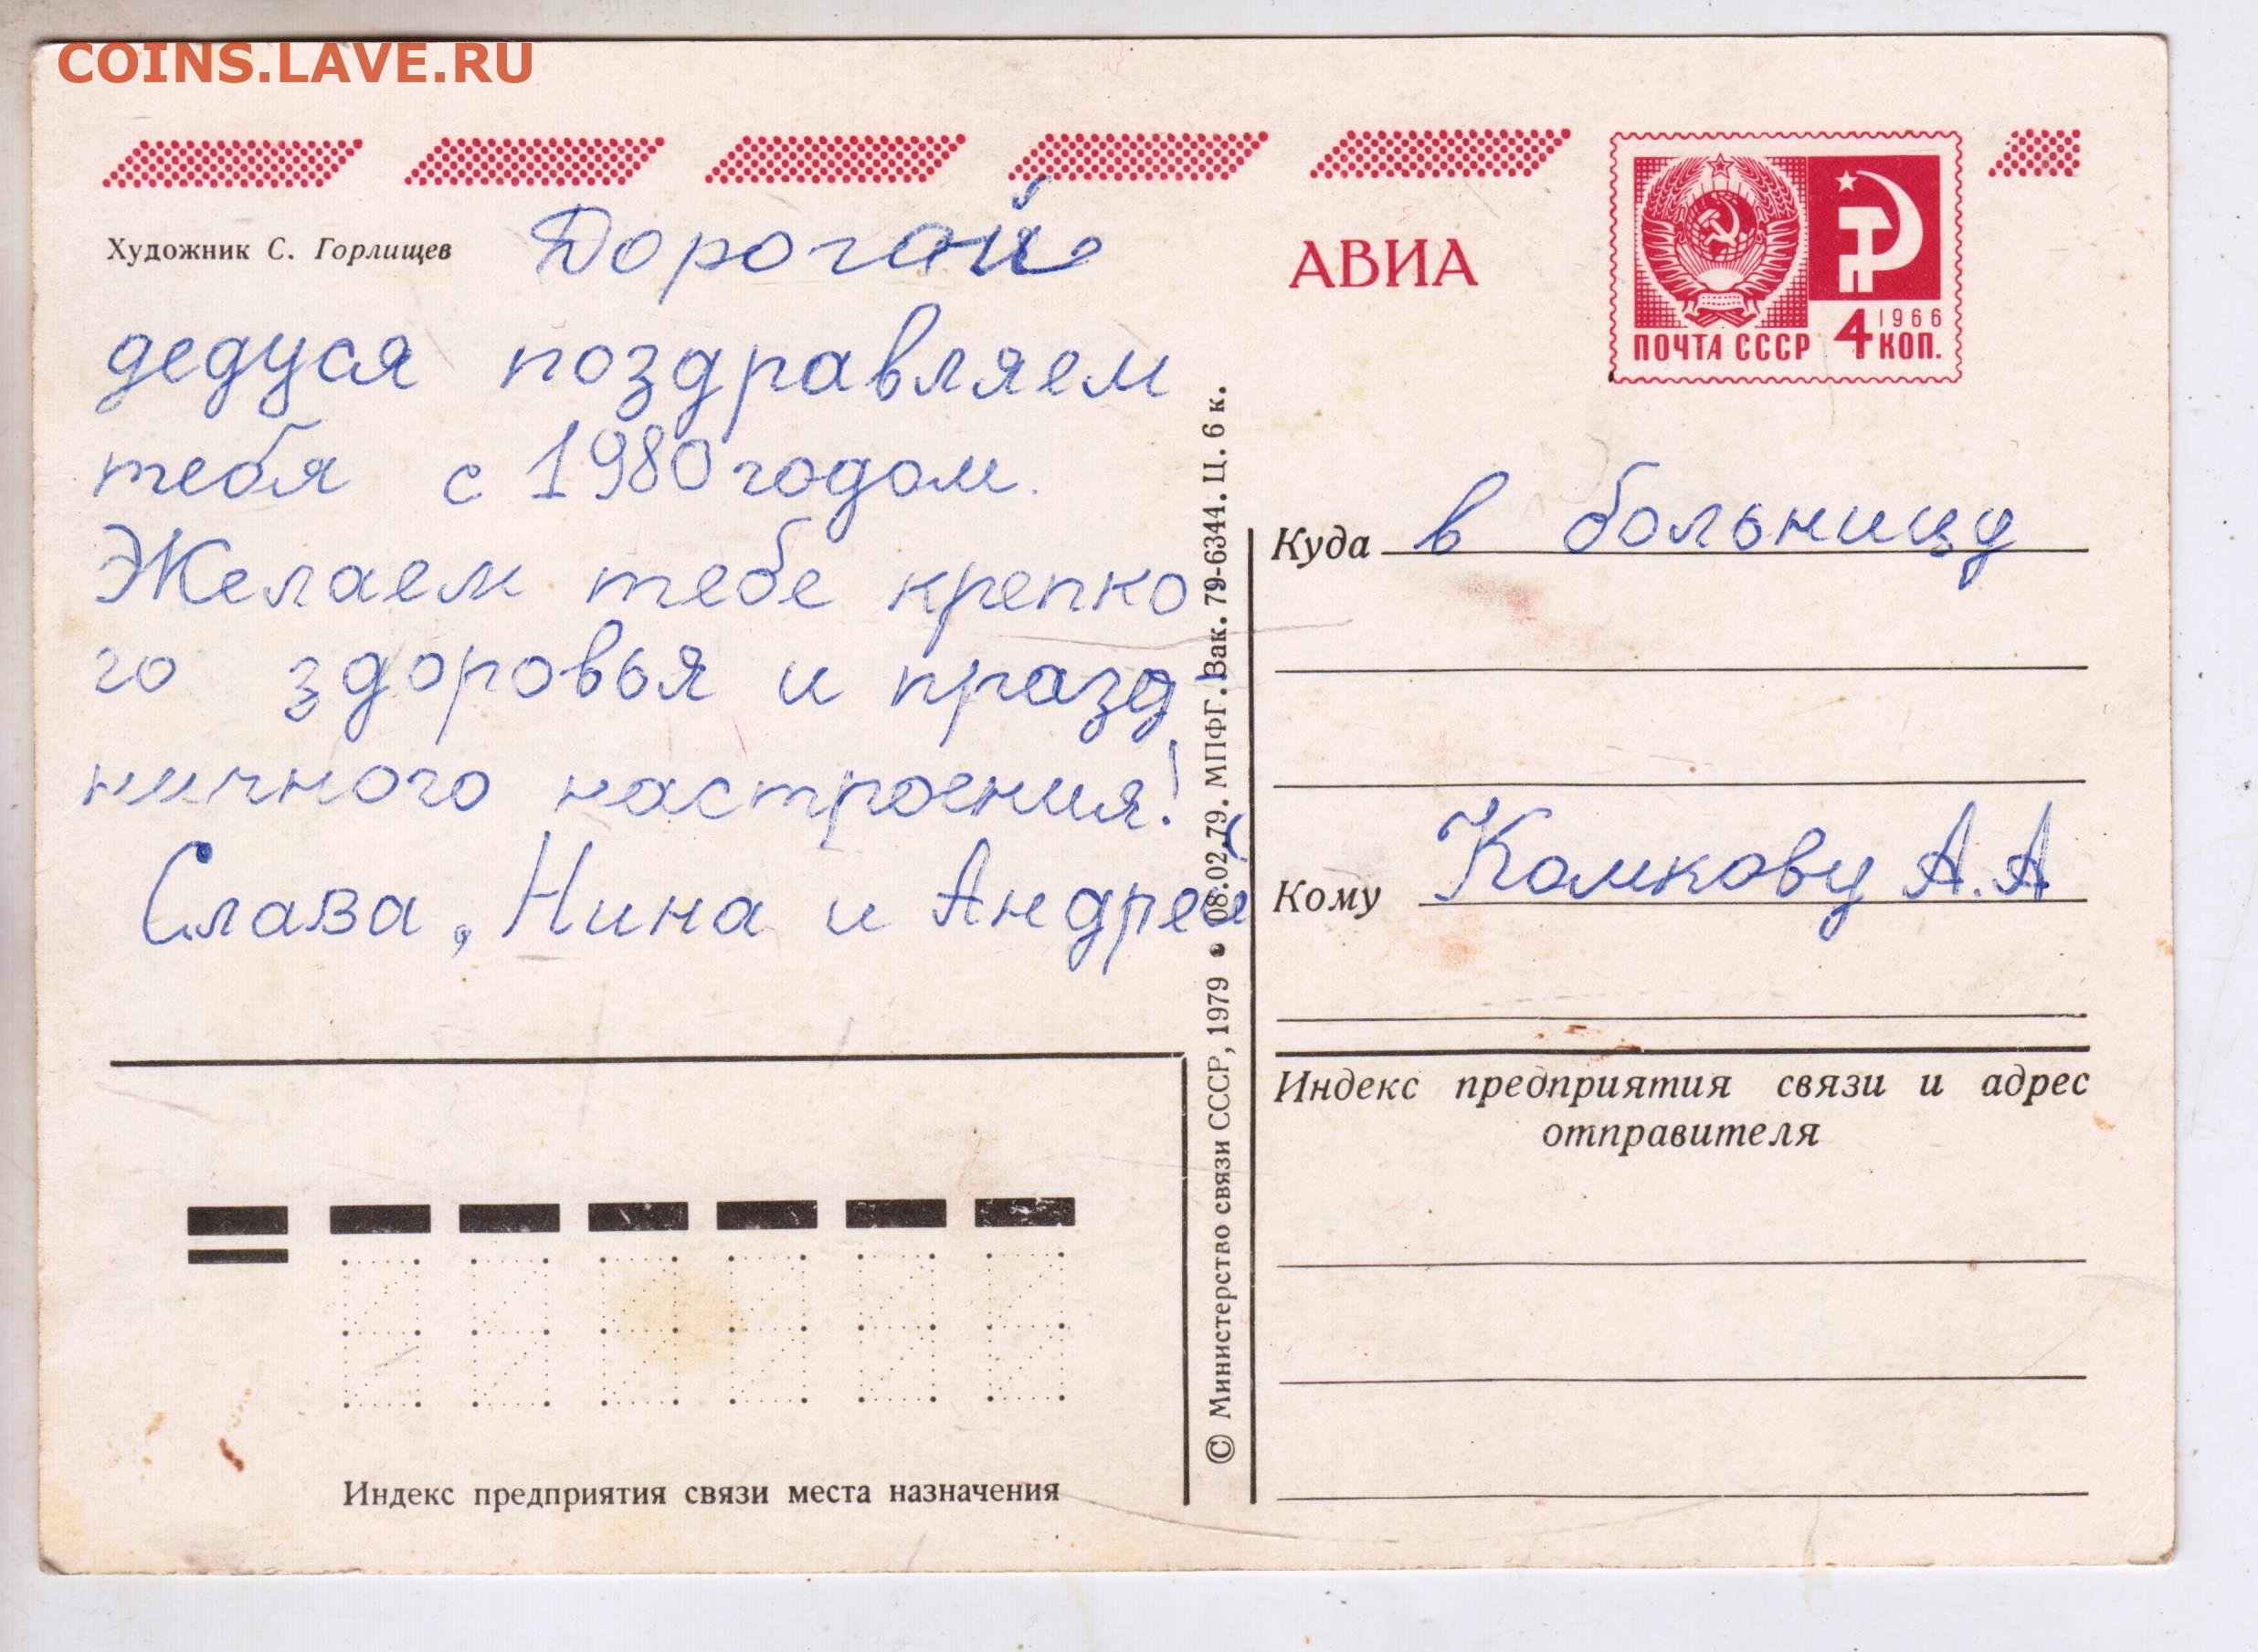 COINS.LAVE.RU
Художник С. Горлищев
Дорогой
дедуся поздравляем
тебя с 1980 годом.
Желаем тебе крепко
го здоровья и празд
ничного настроения!
Слава, Нина и Андрей
АВИА
1966
ПОЧТА СССР 4 КОП.
Куда в больницу
Кому Комкову А.А
Индекс предприятия связи и адрес
отправителя
© Министерство связи СССР, 1979 • 08.02.79. МПФГ. Зак. 79-6344. Ц. 6 к.
Индекс предприятия связи места назначения